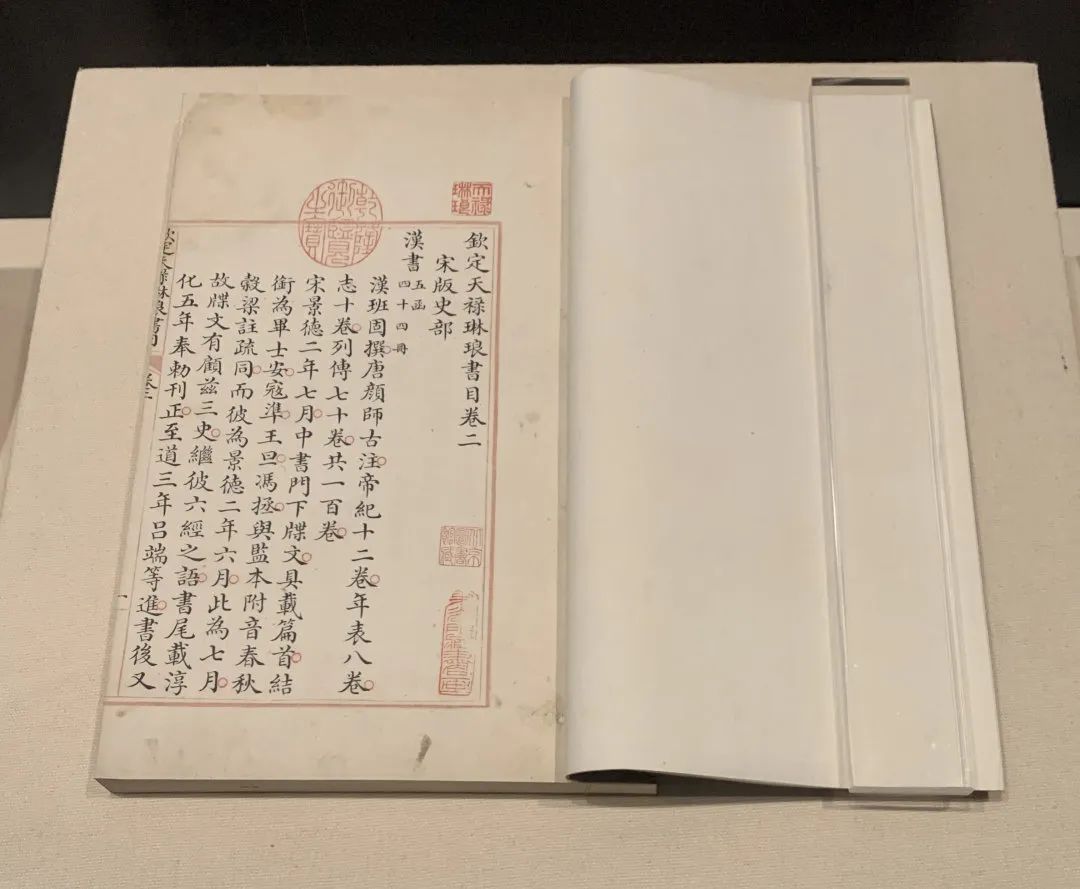 欽定天祿琳琅書目卷二
宋版史部
漢書五函四十四冊
漢班固撰唐顏師古注帝紀十二卷年表八卷
志十卷列傳七十卷共一百卷
宋景德二年七月中書門下牒文具載篇首結
銜為畢士安寇準王旦馮拯與監本附音春秋
穀梁註疏同而彼為景德二年六月此為七月
故牒文有顧茲三史繼彼六經之語書尾載淳
化五年奉勅刊正至道三年呂端等進書後又
欽定天祿琳琅書目
天祿琳琅
乾隆御覽之寶